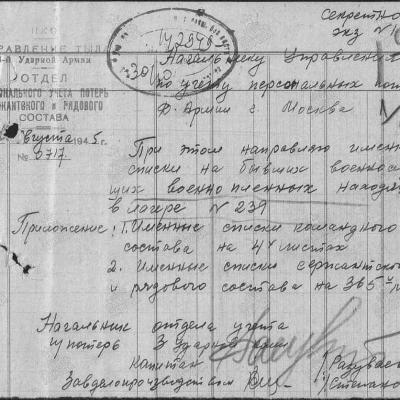 Секретно
экз №1
НКО
УПРАВЛЕНИЕ ТЫЛ
3-й Ударной Армии
ОТДЕЛ
ОНАЛЬНОГО УЧЕТА ПОТЕРЬ
ЖАНТСКОГО и РЯДОВОГО
СОСТАВА
августа 1945 г.
№ 0717
Начальнику Управления
по учету персональных пот
К. Армии г. Москва
При этом направляю имен
списки на бывших военнос
щих военнопленных находя
в лагере № 239
Приложение: 1. Именные списки командного
состава на 41 листах
2. Именные списки сержантског
и рядового состава на 365 л
Начальник отдела учета
п/потерь 3 Ударной Армии
Капитан
Завделопроизводством